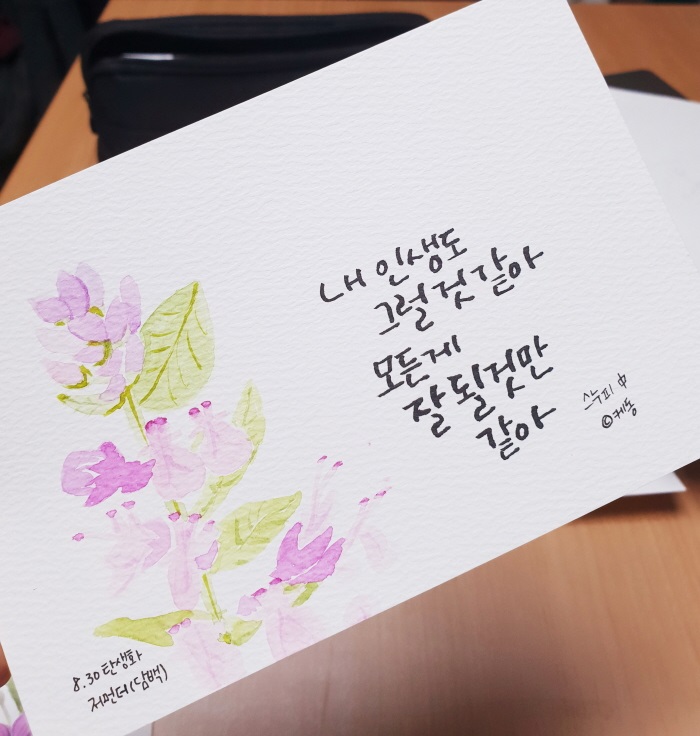 내 인생도
그럴 것 같아
모든게
잘 될 것만
같아
스누피 中
©케동
8.30 탄생화
저먼더(담백)